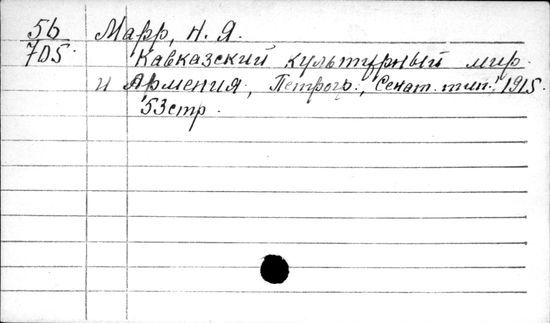 56 Марр, Н. Я.
705. Кавказский культурный мир
и Армения, Петрогр., Сенат. тип. 1915.
53стр.